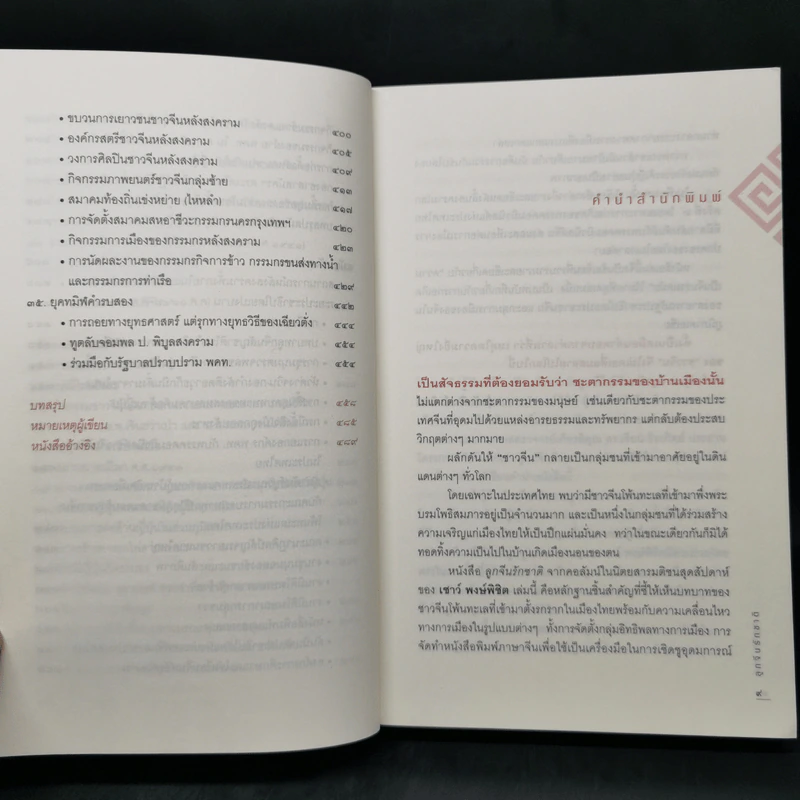 • ขบวนการเยาวชนชาวจีนหลังสงคราม ๔๐๐
• องค์กรสตรีชาวจีนหลังสงคราม ๔๐๕
• วงการศิลปินชาวจีนหลังสงคราม ๔๐๙
• กิจกรรมภาพยนตร์ชาวจีนกลุ่มซ้าย ๔๑๓
• สมาคมท้องถิ่นเช่งหย่าย (ไหหลำ) ๔๑๗
• การจัดตั้งสมาคมสหอาชีวะกรรมกรนครกรุงเทพฯ ๔๒๐
• กิจกรรมการเมืองของกรรมกรหลังสงคราม ๔๒๓
• การนัดผละงานของกรรมกรกิจการข้าว กรรมกรขนส่งทางน้ำ
และกรรมกรการท่าเรือ ๔๒๙
๓๕. ยุคทมิฬคำรบสอง ๔๔๒
• การถอยทางยุทธศาสตร์ แต่รุกทางยุทธวิธีของเฉียวตั่ง ๔๔๔
• ทูตลับจอมพล ป. พิบูลสงคราม ๔๕๔
• ร่วมมือกับรัฐบาลปราบปราม พคท. ๔๕๔
บทสรุป ๔๕๘
หมายเหตุผู้เขียน ๔๘๕
หนังสืออ้างอิง ๔๘๙
คำนำสำนักพิมพ์
เป็นสัจธรรมที่ต้องยอมรับว่า ชะตากรรมของบ้านเมืองนั้น
ไม่แตกต่างจากชะตากรรมของมนุษย์ เช่นเดียวกับชะตากรรมของประ
เทศจีนที่อุดมไปด้วยแหล่งอารยธรรมและทรัพยากร แต่กลับต้องประสบ
วิกฤตต่างๆ มากมาย
ผลักดันให้ “ชาวจีน” กลายเป็นกลุ่มชนที่เข้ามาอาศัยอยู่ในดิน
แดนต่างๆ ทั่วโลก
โดยเฉพาะในประเทศไทย พบว่ามีชาวจีนโพ้นทะเลที่เข้ามาพึ่งพระ
บรมโพธิสมภารอยู่เป็นจำนวนมาก และเป็นหนึ่งในกลุ่มชนที่ได้ร่วมสร้าง
ความเจริญแก่เมืองไทยให้เป็นปึกแผ่นมั่นคง ทว่าในขณะเดียวกันก็มิได้
ทอดทิ้งความเป็นไปในบ้านเกิดเมืองนอนของตน
หนังสือ ลูกจีนรักชาติ จากคอลัมน์ในนิตยสารมติชนสุดสัปดาห์
ของ เชาว์ พงษ์พิชิต เล่มนี้ คือหลักฐานชิ้นสำคัญที่ชี้ให้เห็นบทบาทของ
ชาวจีนโพ้นทะเลที่เข้ามาตั้งรกรากในเมืองไทยพร้อมกับความเคลื่อนไหว
ทางการเมืองในรูปแบบต่างๆ ทั้งการจัดตั้งกลุ่มอิทธิพลทางการเมือง การ
จัดทำหนังสือพิมพ์ภาษาจีนเพื่อใช้เป็นเครื่องมือในการเชิดชูอุดมการณ์
ลูกจีนรักชาติ
๙